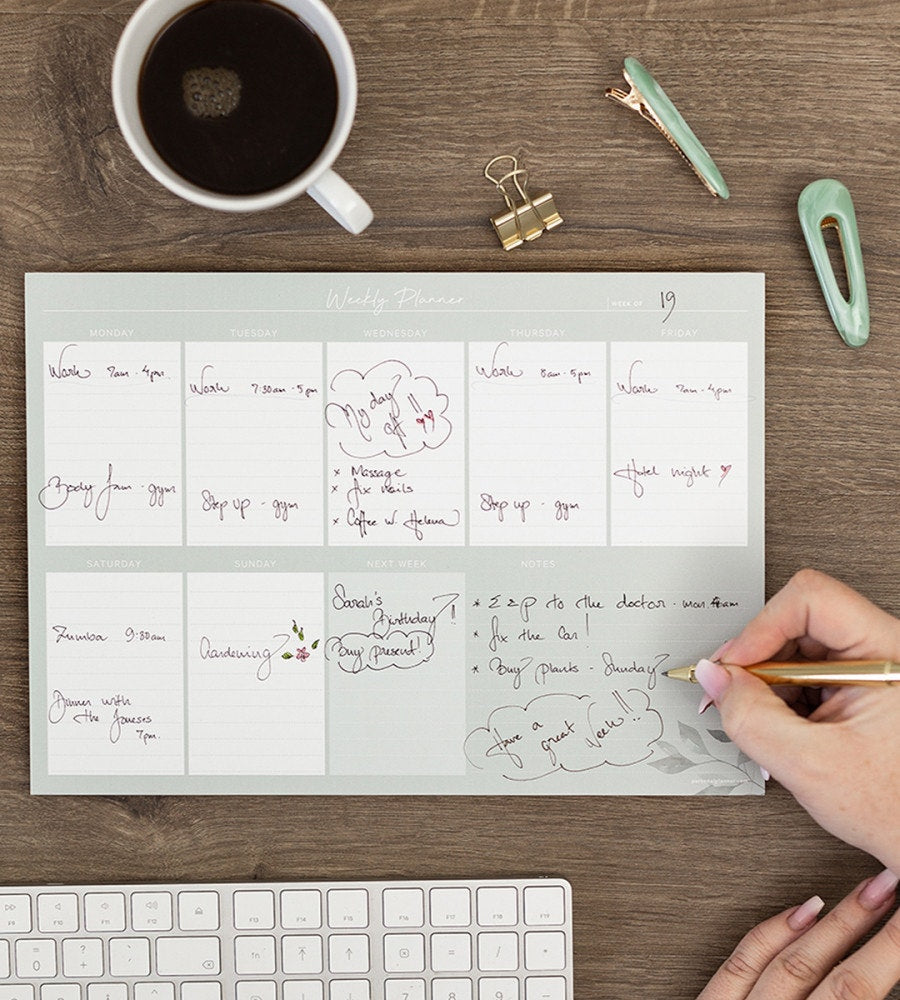 Weekly Planner
WEEK OF 19
MONDAY
Work 7am - 4pm.
Body Jam - gym
TUESDAY
Work 7:30am - 5pm
Step up - gym
WEDNESDAY
My day
off !!
x Massage
x fix nails
x Coffee w Helena
THURSDAY
Work 8am - 5pm
Step up - gym
FRIDAY
Work 7am - 4pm
Hotel night
SATURDAY
Zumba 9:30am
Dinner with
the Joneses
7pm.
SUNDAY
Gardening
NEXT WEEK
Sarah's
Birthday !!
Buy present!
NOTES
* to the doctor - mon.
* fix the car!
* Buy plants - Sunday
Have a
great Week!!
personalplanner
F9
F10
F11
F12
F13
F14
F15
F16
F17
F18
F19
=
0
?
+
`
fn
=
/
*
7
8
9
-